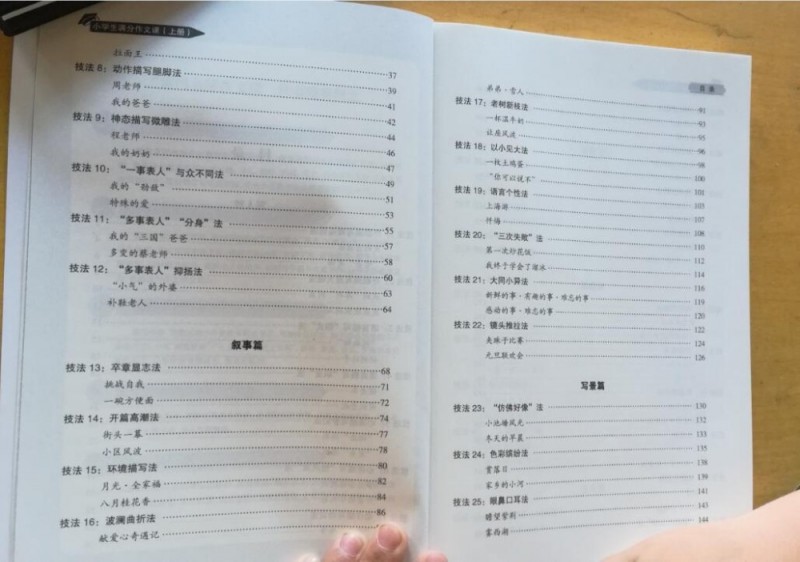 小学生满分作文课（上册）
拉面王 37
技法 8：动作描写腿脚法 39
周老师 41
我的爸爸 42
技法 9：神态描写微雕法 44
程老师 46
我的奶奶 47
技法 10：“一事表人”与众不同法 49
我的“劲敌” 51
特殊的爱 53
技法 11：“多事表人”“分身”法 55
我的“三国”爸爸 57
多变的蔡老师 58
技法 12：“多事表人”抑扬法 60
“小气”的外婆 63
补鞋老人 64
叙事篇
技法 13：卒章显志法 68
挑战自我 71
一碗方便面 72
技法 14：开篇高潮法 74
街头一幕 77
小区风波 78
技法 15：环境描写法 80
月光·全家福 82
八月桂花香 84
技法 16：波澜曲折法 86
献爱心奇遇记
目录
弟弟·雪人 91
技法 17：老树新枝法 93
一杯温牛奶 95
让座风波 96
技法 18：以小见大法 98
一枚土鸡蛋 100
“你可以说不” 101
技法 19：语言个性法 105
上海游 107
忏悔 108
技法 20：“三次失败”法 110
第一次炒花饭 112
我终于学会了溜冰 114
技法 21：大同小异法 116
新鲜的事·有趣的事·难忘的事 119
感动的事·难忘的事 120
技法 22：镜头推拉法 122
夹珠子比赛 124
元旦联欢会 126
写景篇
技法 23：“仿佛好像”法 130
小池塘风光 132
冬天的早晨 133
技法 24：色彩缤纷法 135
赏落日 138
家乡的小河 139
技法 25：眼鼻口耳法 141
瞻望紫荆 143
雾西湖 144